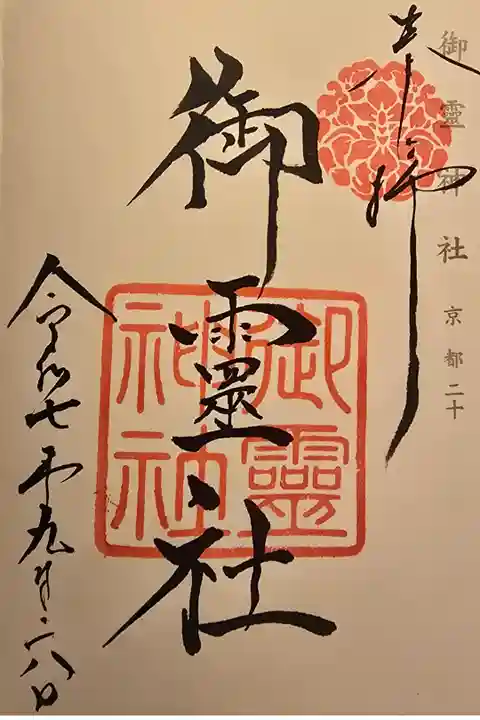 御靈神社 京都二十
奉拝
御靈社
御靈
神社
令和七年九月二八日